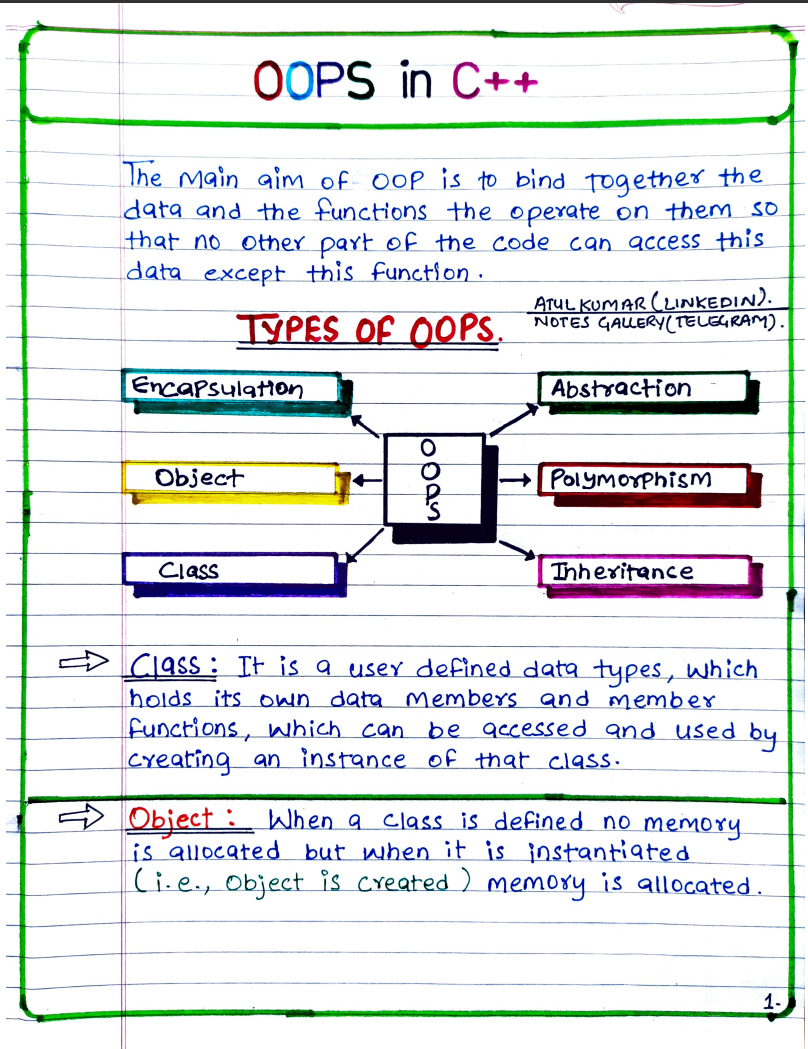 OOPS in C++
The main aim of OOP is to bind together the
data and the functions the operate on them so
that no other part of the code can access this
data except this function.
ATUL KUMAR (LINKEDIN).
NOTES GALLERY (TELEGRAM).
TYPES OF OOPS.
Encapsulation
Abstraction
OOPS
Object
Polymorphism
Class
Inheritance
Class: It is a user defined data types, which
holds its own data members and member
functions, which can be accessed and used by
creating an instance of that class.
Object: When a class is defined no memory
is allocated but when it is instantiated
(i.e., object is created) memory is allocated.
1.